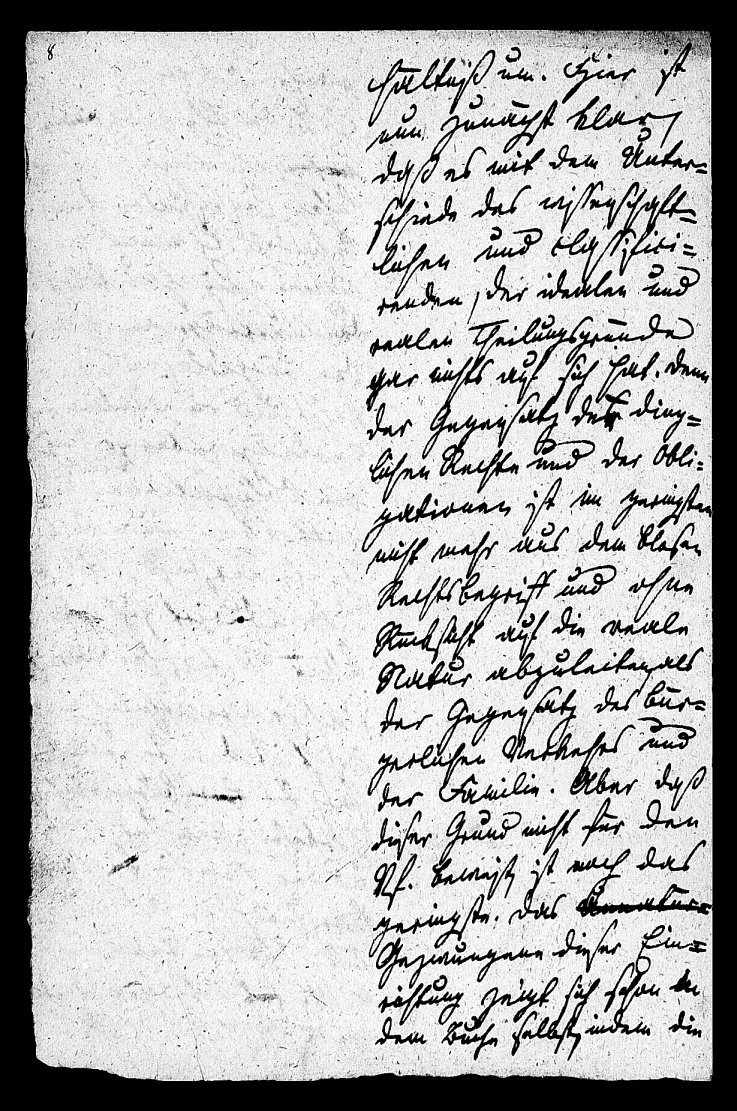 8
hältniß um. Hier ist
nun zunächst klar,
daß es mit dem Unter=
schiede des wissenschaft=
lichen und classifici=
renden, der idealen und
realen Theilungsgründe
gar nichts auf sich hat. Denn
der Gegensatz der ding=
lichen Rechte und der Obli=
gationen ist im geringsten
nicht mehr aus dem blosen
Rechtsbegriff und ohne
Rücksicht auf die reale
Natur abzuleiten, als
der Gegensatz des bür=
gerlichen Verkehrs und
der Familie. Aber daß
dieser Grund nicht für den
Vf. beweist, ist noch das
geringste. Das Unnatür=
Gezwungene dieser Ein=
richtung zeigt sich schon in
dem Buche selbst, indem die